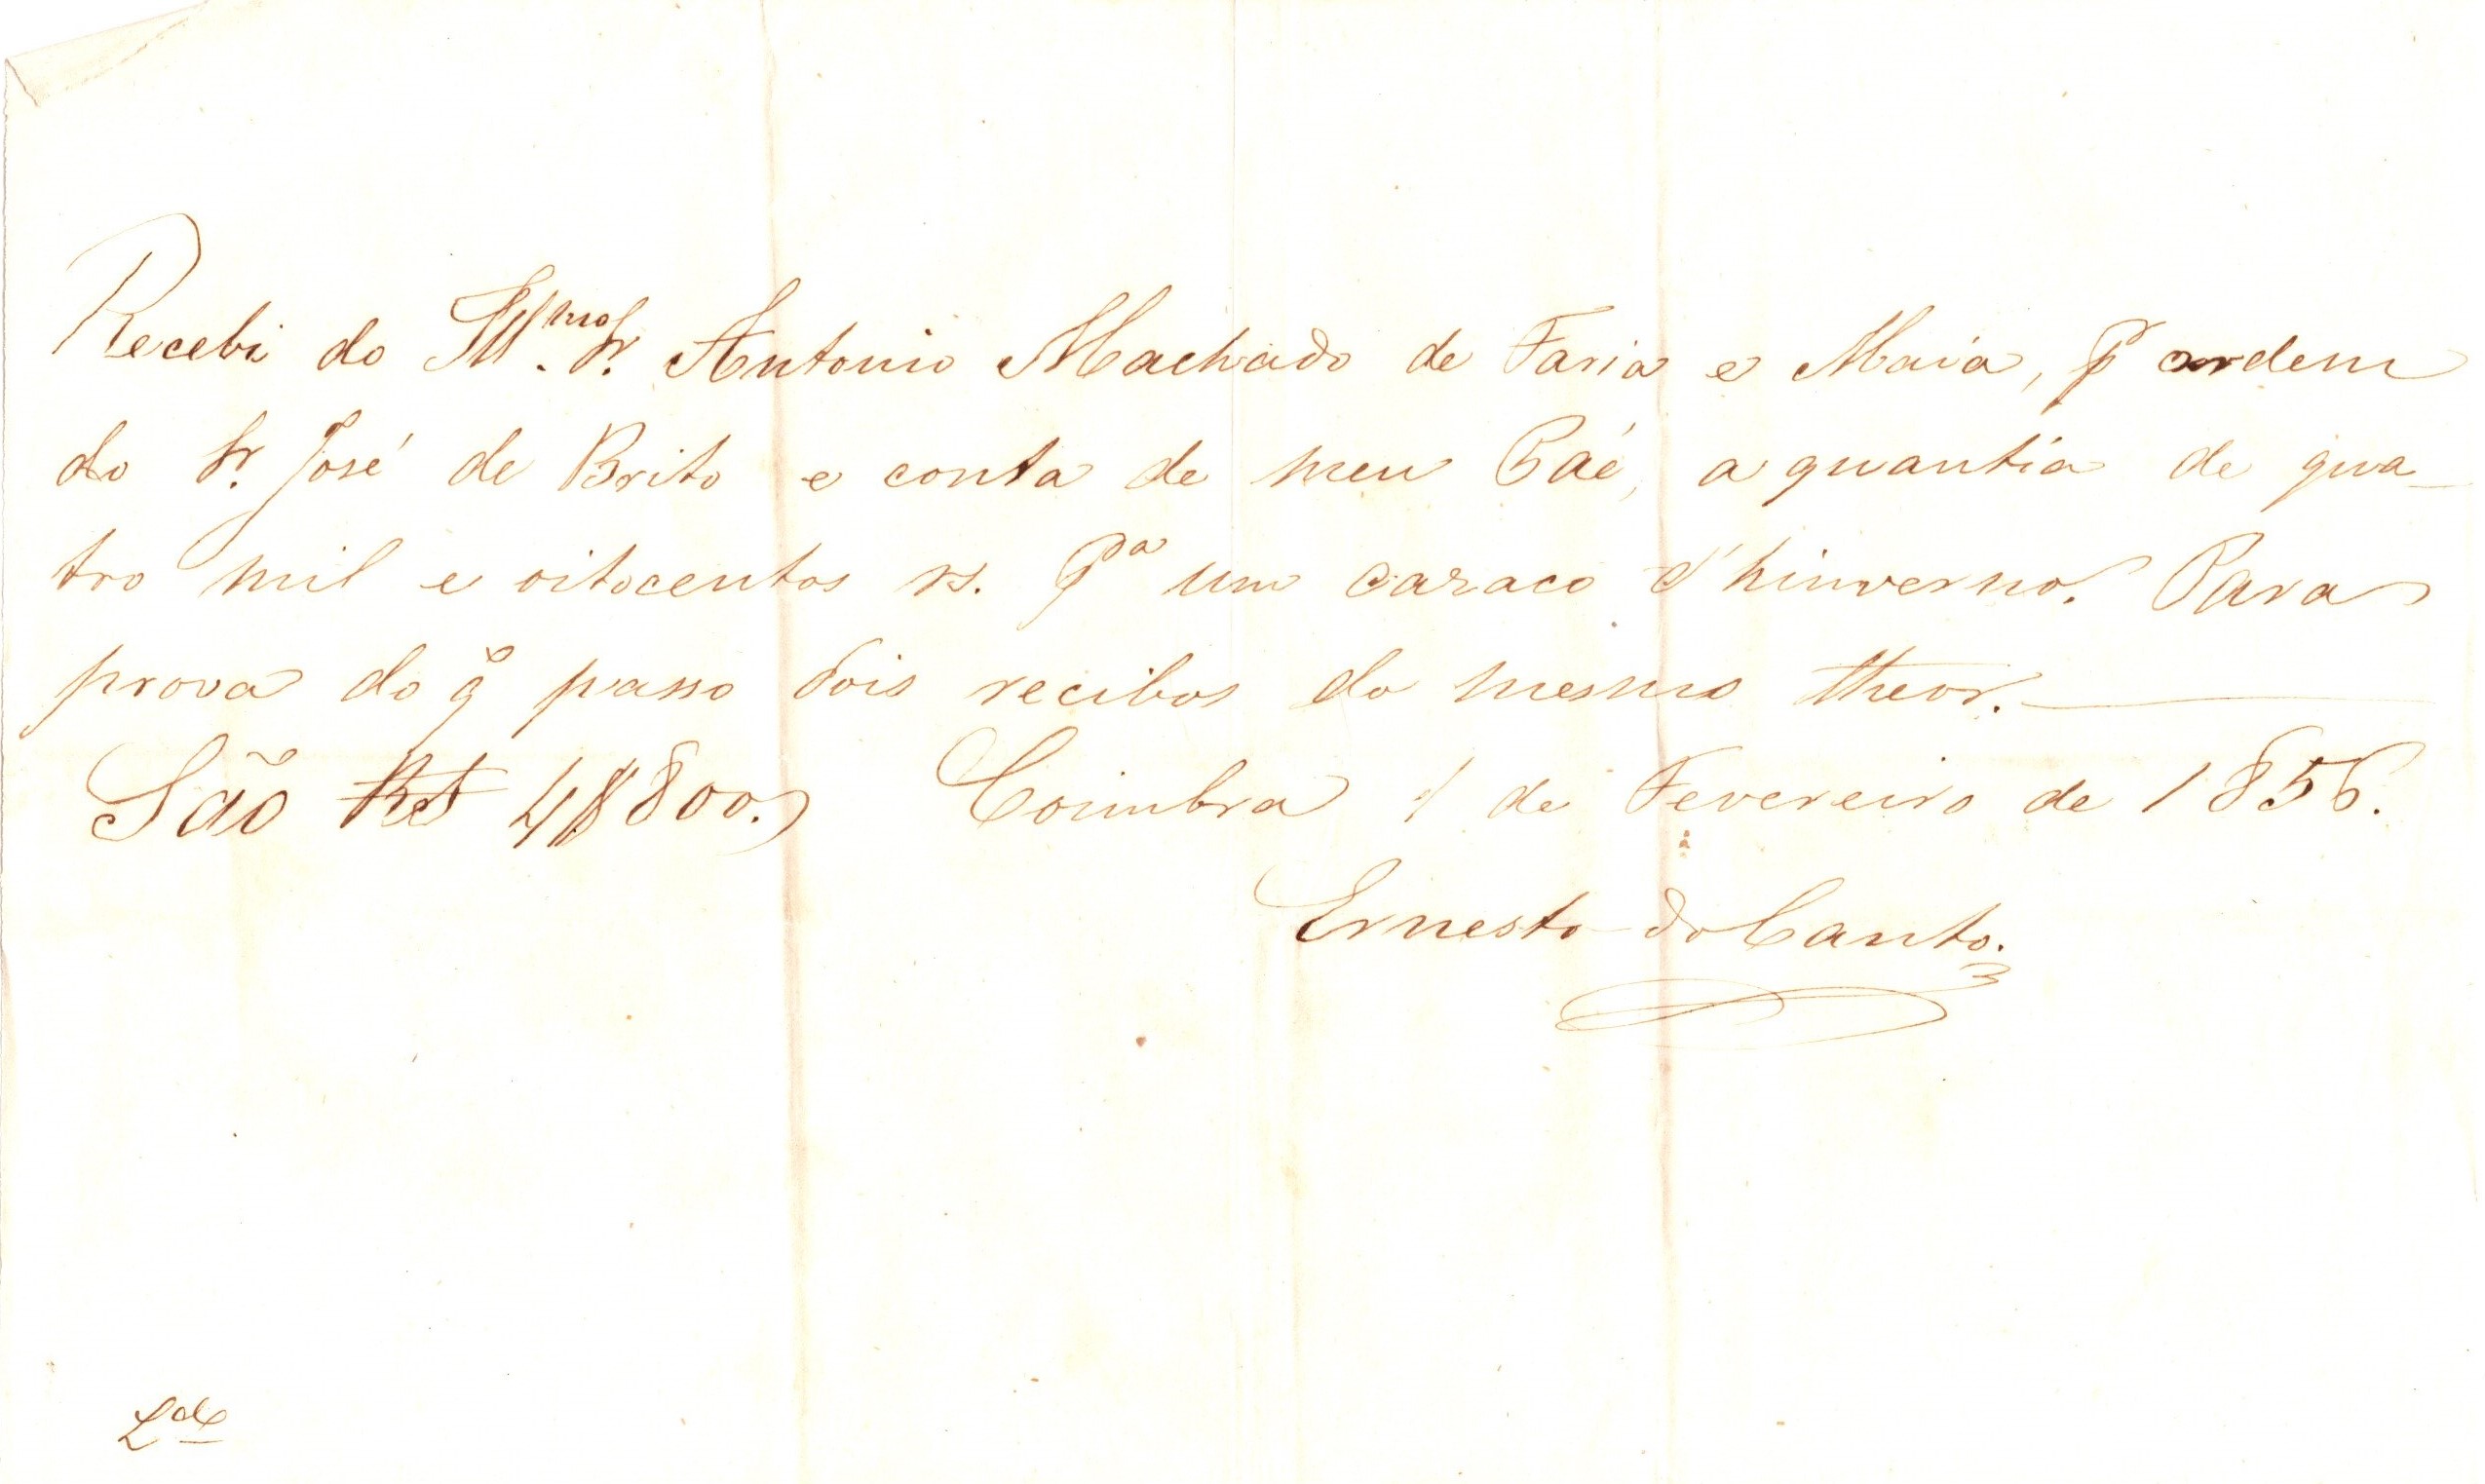 Recebi do Illmo. Sr. Antonio Machado de Faria e Maia, pr ordem
do Sr. José de Brito e conta de meu Páe, a quantia de qua-
tro mil e oitocentos rs. Pa um cazaco d'hinverno. Para
prova do q̃ passo dois recibos do mesmo theor.
São Rs 4$800. Coimbra 1 de Fevereiro de 1856.
Ernesto do Canto.